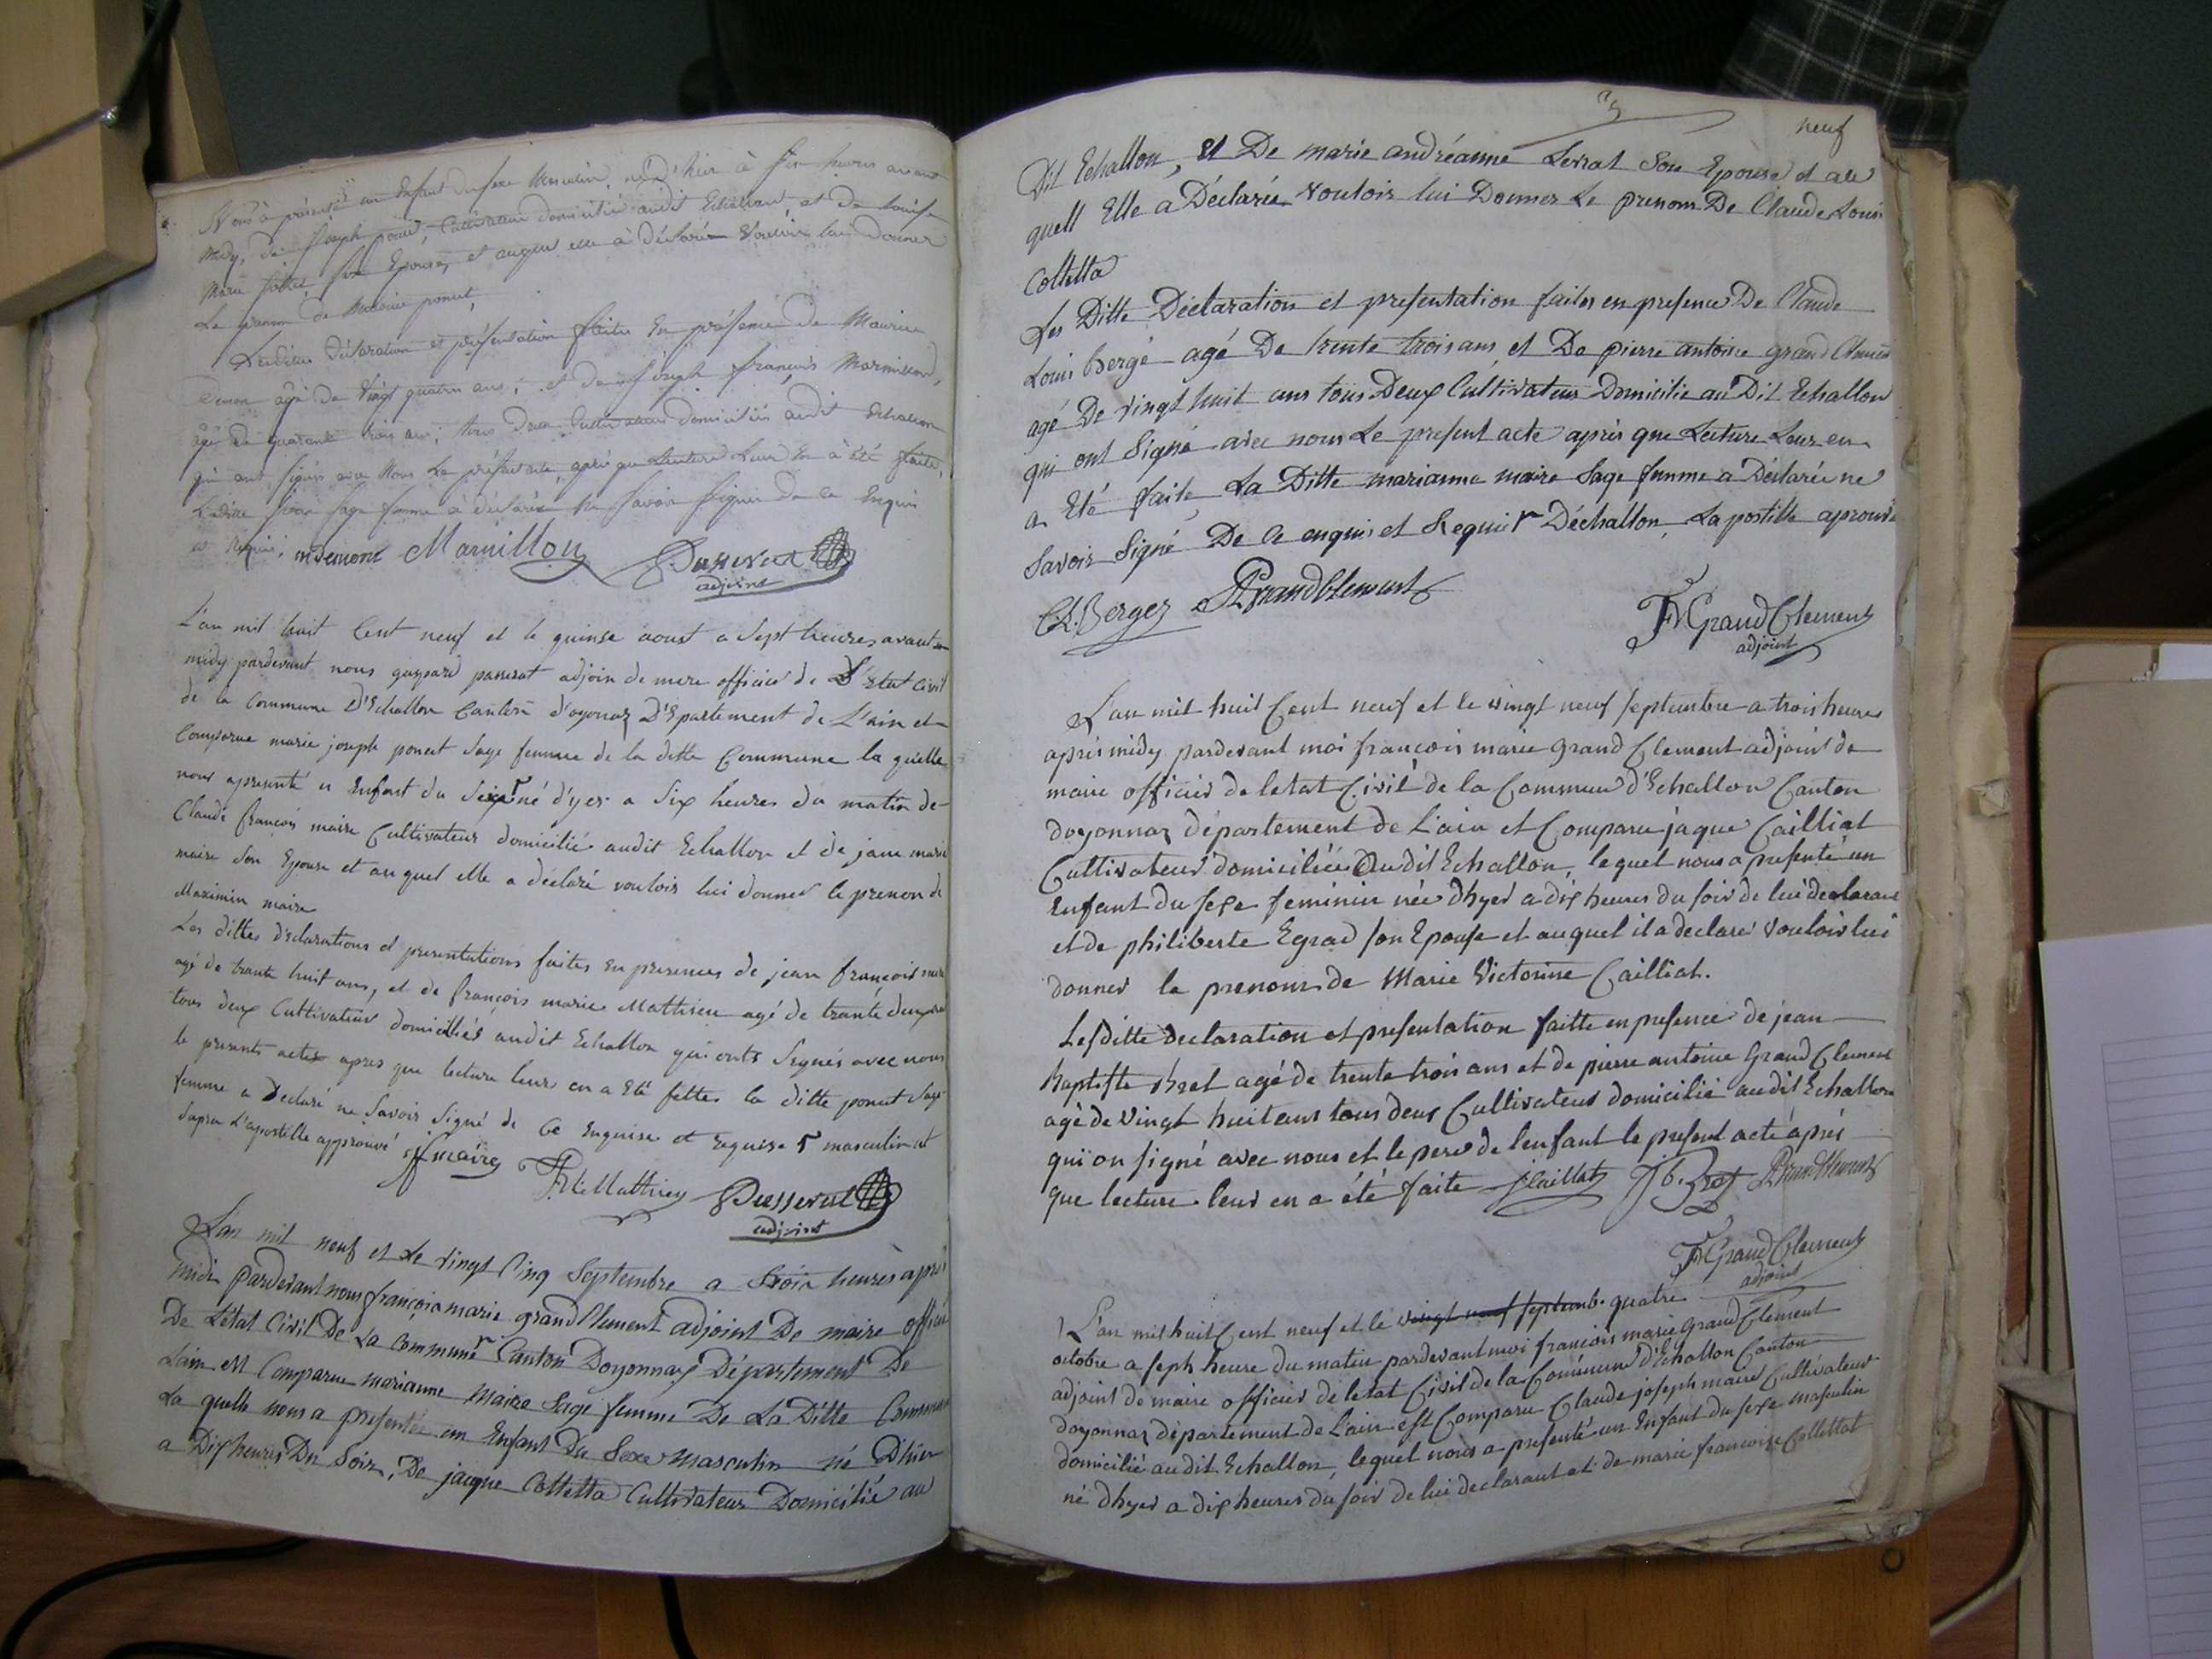 Nous à présenté un Enfant du sexe Masculin, né D'hier à six heures avant
Midy, de Joseph poncet, Cultivateur domicilié audit Echallon, et de
Marie son Epouse, et auquel elle à déclarée Vouloir lui donner
Le prenom de Maurice poncet,
Lesdittes Déclaration et présentation faites En présence de Maurice
agé de Vingt quatre ans; et de joseph françois Marmillon,
agé de quarante trois ans; tous deux Cultivateurs domiciliés audit Echallon
qui ont signés avec Nous Le présent acte, après que Lecture Leur En à été faite,
Ladite sage femme à déclarée Ne Savoir signer de ce Enquis
et Requis, Marmillon
adjoint
L'an mil huit Cent neuf et le quinse aoust a Sept heures avant
midy pardevant nous gaspard passerat adjoin de mere officier de L'Etat Civil
de la Commune D'Echallon Canton d'oyonaz D'Epartement de L'ain et
Comparue marie joseph poncet Sage femme de la ditte Commune la quelle
nous apresenté u Enfant du Sexe né d'yer a Six heures du matin de
Claude françois maire Cultivateur domicilié audit Echallon et de jane marie
maire Son Epouse et au quel elle a déclaré vouloir lui donner le prenon de
Maximin maire
Les dittes déclarations et presentations faites en presences de jean françois maire
agé de trante huit ans, et de françois marie Mathieu agé de trante deux ans
tous deux Cultivateur domiciliés audit Echallon qui onts Signés avec nous
le presents actes apres que lecture leurs en a Eté fettes la ditte poncet Sage
femme a Déclaré ne Savoir Signé de Ce Enquise et requise masculin et
dapres l'apostille approuvé jf maire
fr Mathieu Passerat
adjoint
L'an mil neuf et Le vingt Cinq Septembre a trois heures après
midi pardevant nous françois marie grand Clement adjoint De maire officier
De Létat Civil De La commune Canton Doyonnax Département De
Lain est Comparue marianne maire Sage femme De La Ditte Commune
La quelle nous a presentée un Enfant Du Sexe masculin né D'hier
a Dix heures Du Soir, De jacque Colletta Cultivateur Domicilié au
neuf
Dit Echallon, et De marie andréanne Son Epouse et au
quell Elle a Déclarée vouloir lui Donner Le prenom De Claude Louis
Colletta
Les Ditte Déclaration et presentation faites en presence De Claude
Louis bergé agé De trente trois ans et De pierre antoine grand Clement
agé De vingt huit ans tous Deux Cultivateur Domicilié au Dit Echallon
qui ont Signé avec nous Le present acte après que Lecture Leur en
a Eté faite, La Ditte marianne maire Sage femme a Déclarée ne
Savoir Signé De Ce enquis et Requi Déchallon, La postille aprouvé
CL. Berger PGrandClement
FMGrandClement
adjoint
L'an mil huit Cent neuf et le vingt neuf septembre a trois heures
après midy pardevant moi françois marie grand Clement adjoint de
maire officier de letat Civil de la Commune d'Echallon Canton
doyonnaz département de Lain et Comparu jaque Cailliat
Cultivateur domiciliée Audit Echallon, lequel nous a presenté un
Enfant du sexe feminin née dhyer a dix heures du soir de lui declarant
et de philiberte Egrad son Epouse et auquel il a declaré vouloir lui
donner le prenom de Marie Victorine Cailliat.
Les ditte declaration et presentation faitte en presence de jean
baptiste agé de trente trois ans et de pierre antoine Grand Clement
agé de vingt huit ans tous deux Cultivateus domicilié audit Echallon
qui on signé avec nous et le pere de lenfant le present acte après
que lecture leur en a été faite jCaillat PGrandClement
FMGrandClement
adjoint
L'an mil huit Cent neuf et le vingt neuf septemb. quatre
octobre a seph heure du matin pardevant moi francois marie Grand Clement
adjoint de maire officier de letat Civil de la Commune d'Echallon Canton
doyonnaz département de Lain est Comparu Claude joseph maire Cultivateur
domicilié audit Echallon, lequel nous a presenté un Enfant du sexe masculin
né dhyer a dix heures du soir de lui declarant et de marie francoise Collettat